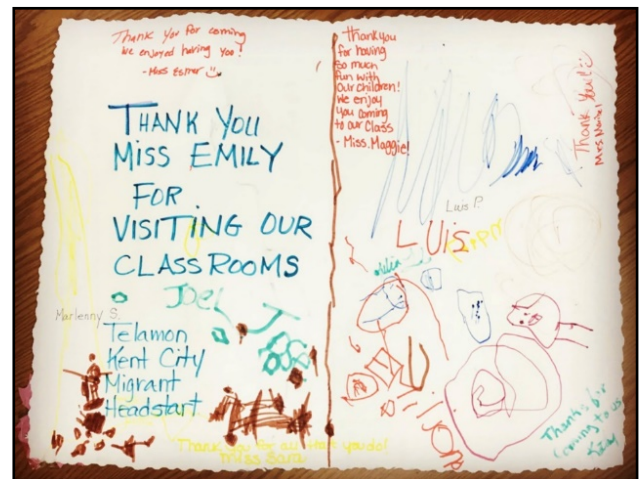 Thank You for coming
We enjoyed having You!
THANK YOU
MISS EMILY
FOR
VISITING OUR
CLASSROOMS
Joel
Marlenny S.
Telamon
Kent City
Migrant
Headstart
Thank you for all that you do!
Miss Sara
Thank you
for having
so much
fun with
Our children!
We enjoy
You coming
to our Class
- Miss. Maggie!
Thank You!
Mrs
Luis P.
LUIS
Thanks for
Coming to us